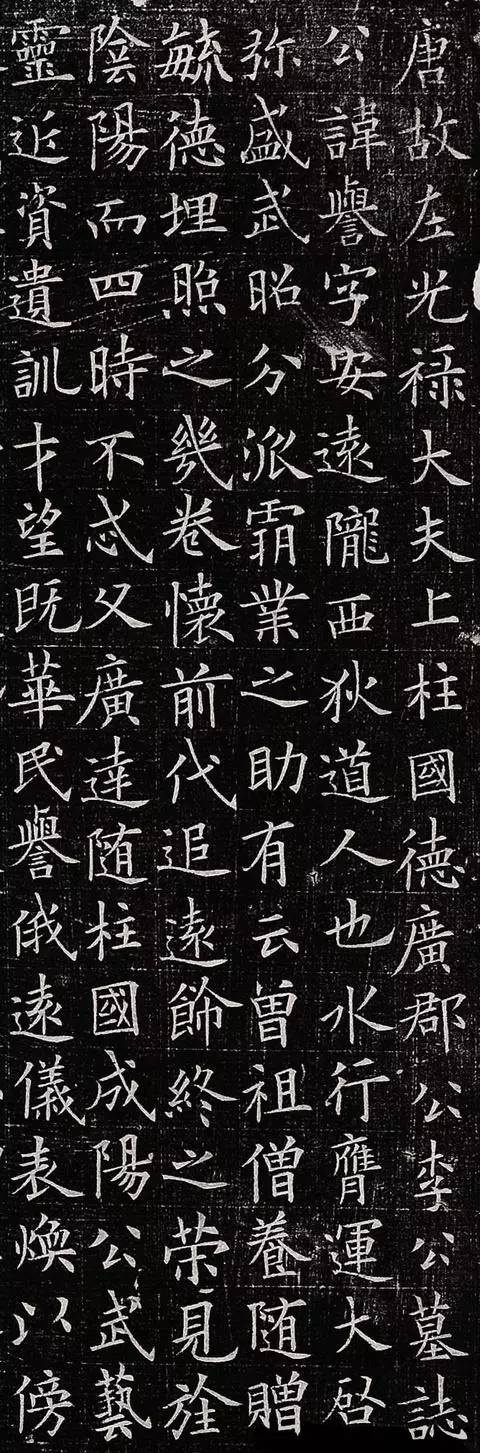 唐故左光祿大夫上柱國德廣郡公李公墓誌
公諱譽字安遠隴西狄道人也水行膺運大启
弥盛武昭分派霸業之助有云曾祖僧養随贈
毓德埋照之幾卷懷前代追遠飾終之荣見旌
陰陽而四時不忒父廣達随柱國成陽公武藝
靈近資遺訓才望既華民譽俄遠儀表煥以傍